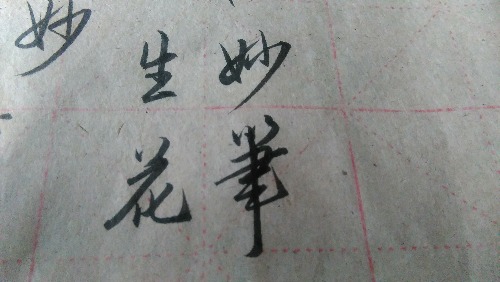 妙筆
生花
妙